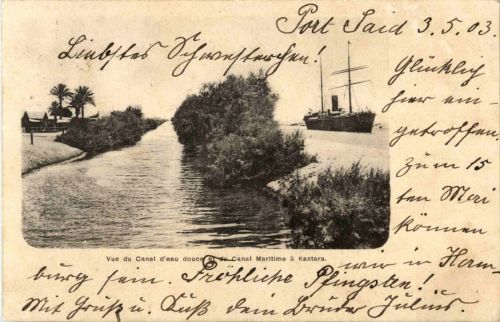 Port Said 3.5.03.
Liebstes Schwesterchen!
Glücklich
hier ein
getroffen.
Zum 15
ten Mai
können
wir in Ham
burg sein. Fröhliche Pfingsten!
Mit Gruß u. Kuß dein Bruder Julius.
Vue du Canal d'eau douce et du Canal Maritime à Kantara.